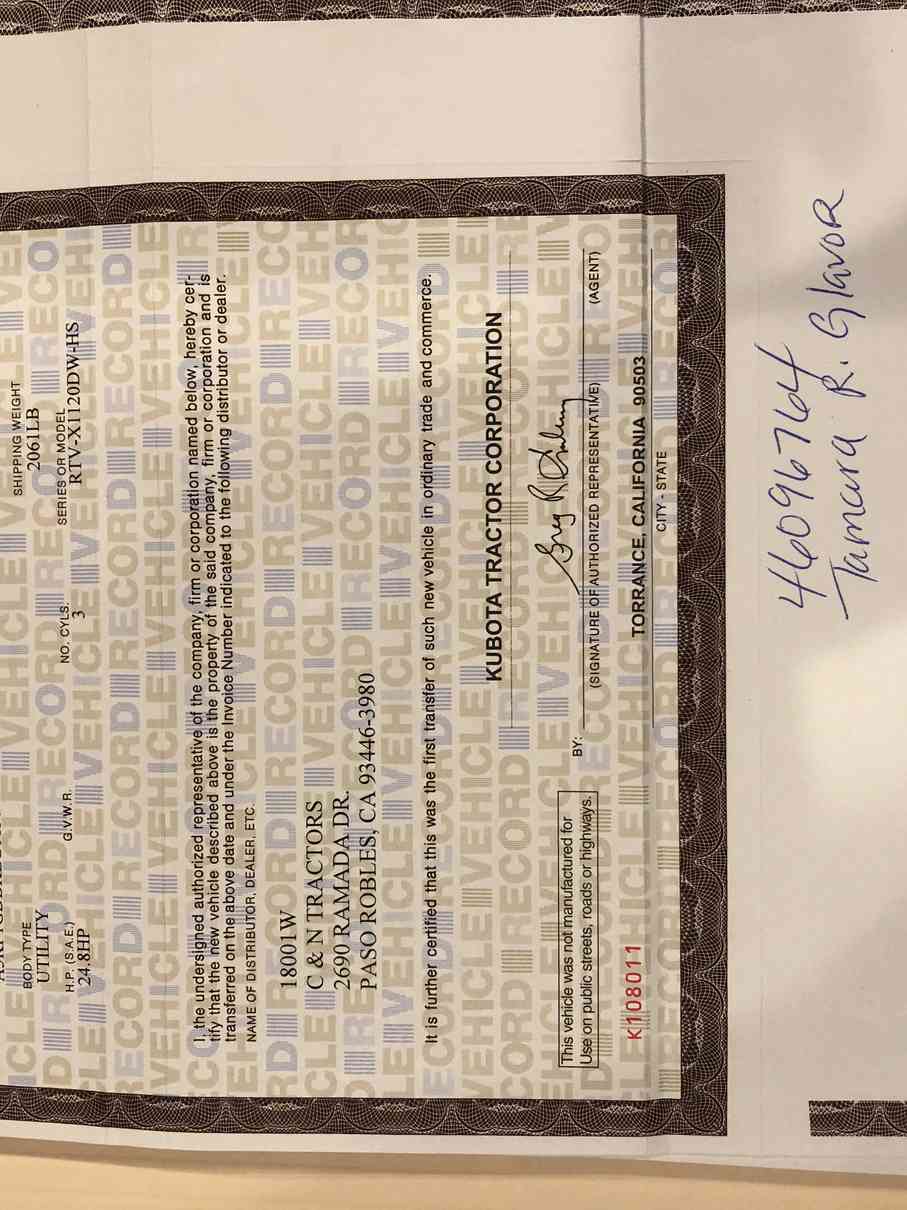 BODY TYPE
UTILITY
SHIPPING WEIGHT
2061LB
H.P. (S.A.E.)
24.8HP
G.V.W.R.
NO. CYLS.
3
SERIES OR MODEL
RTV-X1120DW-HS
I, the undersigned authorized representative of the company, firm or corporation named below, hereby cer-
tify that the new vehicle described above is the property of the said company, firm or corporation and is
transferred on the above date and under the Invoice Number indicated to the following distributor or dealer.
NAME OF DISTRIBUTOR, DEALER, ETC.
18001W
C & N TRACTORS
2690 RAMADA DR.
PASO ROBLES, CA 93446-3980
It is further certified that this was the first transfer of such new vehicle in ordinary trade and commerce.
KUBOTA TRACTOR CORPORATION
BY:
(SIGNATURE OF AUTHORIZED REPRESENTATIVE) (AGENT)
This vehicle was not manufactured for
Use on public streets, roads or highways.
TORRANCE, CALIFORNIA 90503
CITY - STATE
K108011
46096764
Tamara R. Glavor